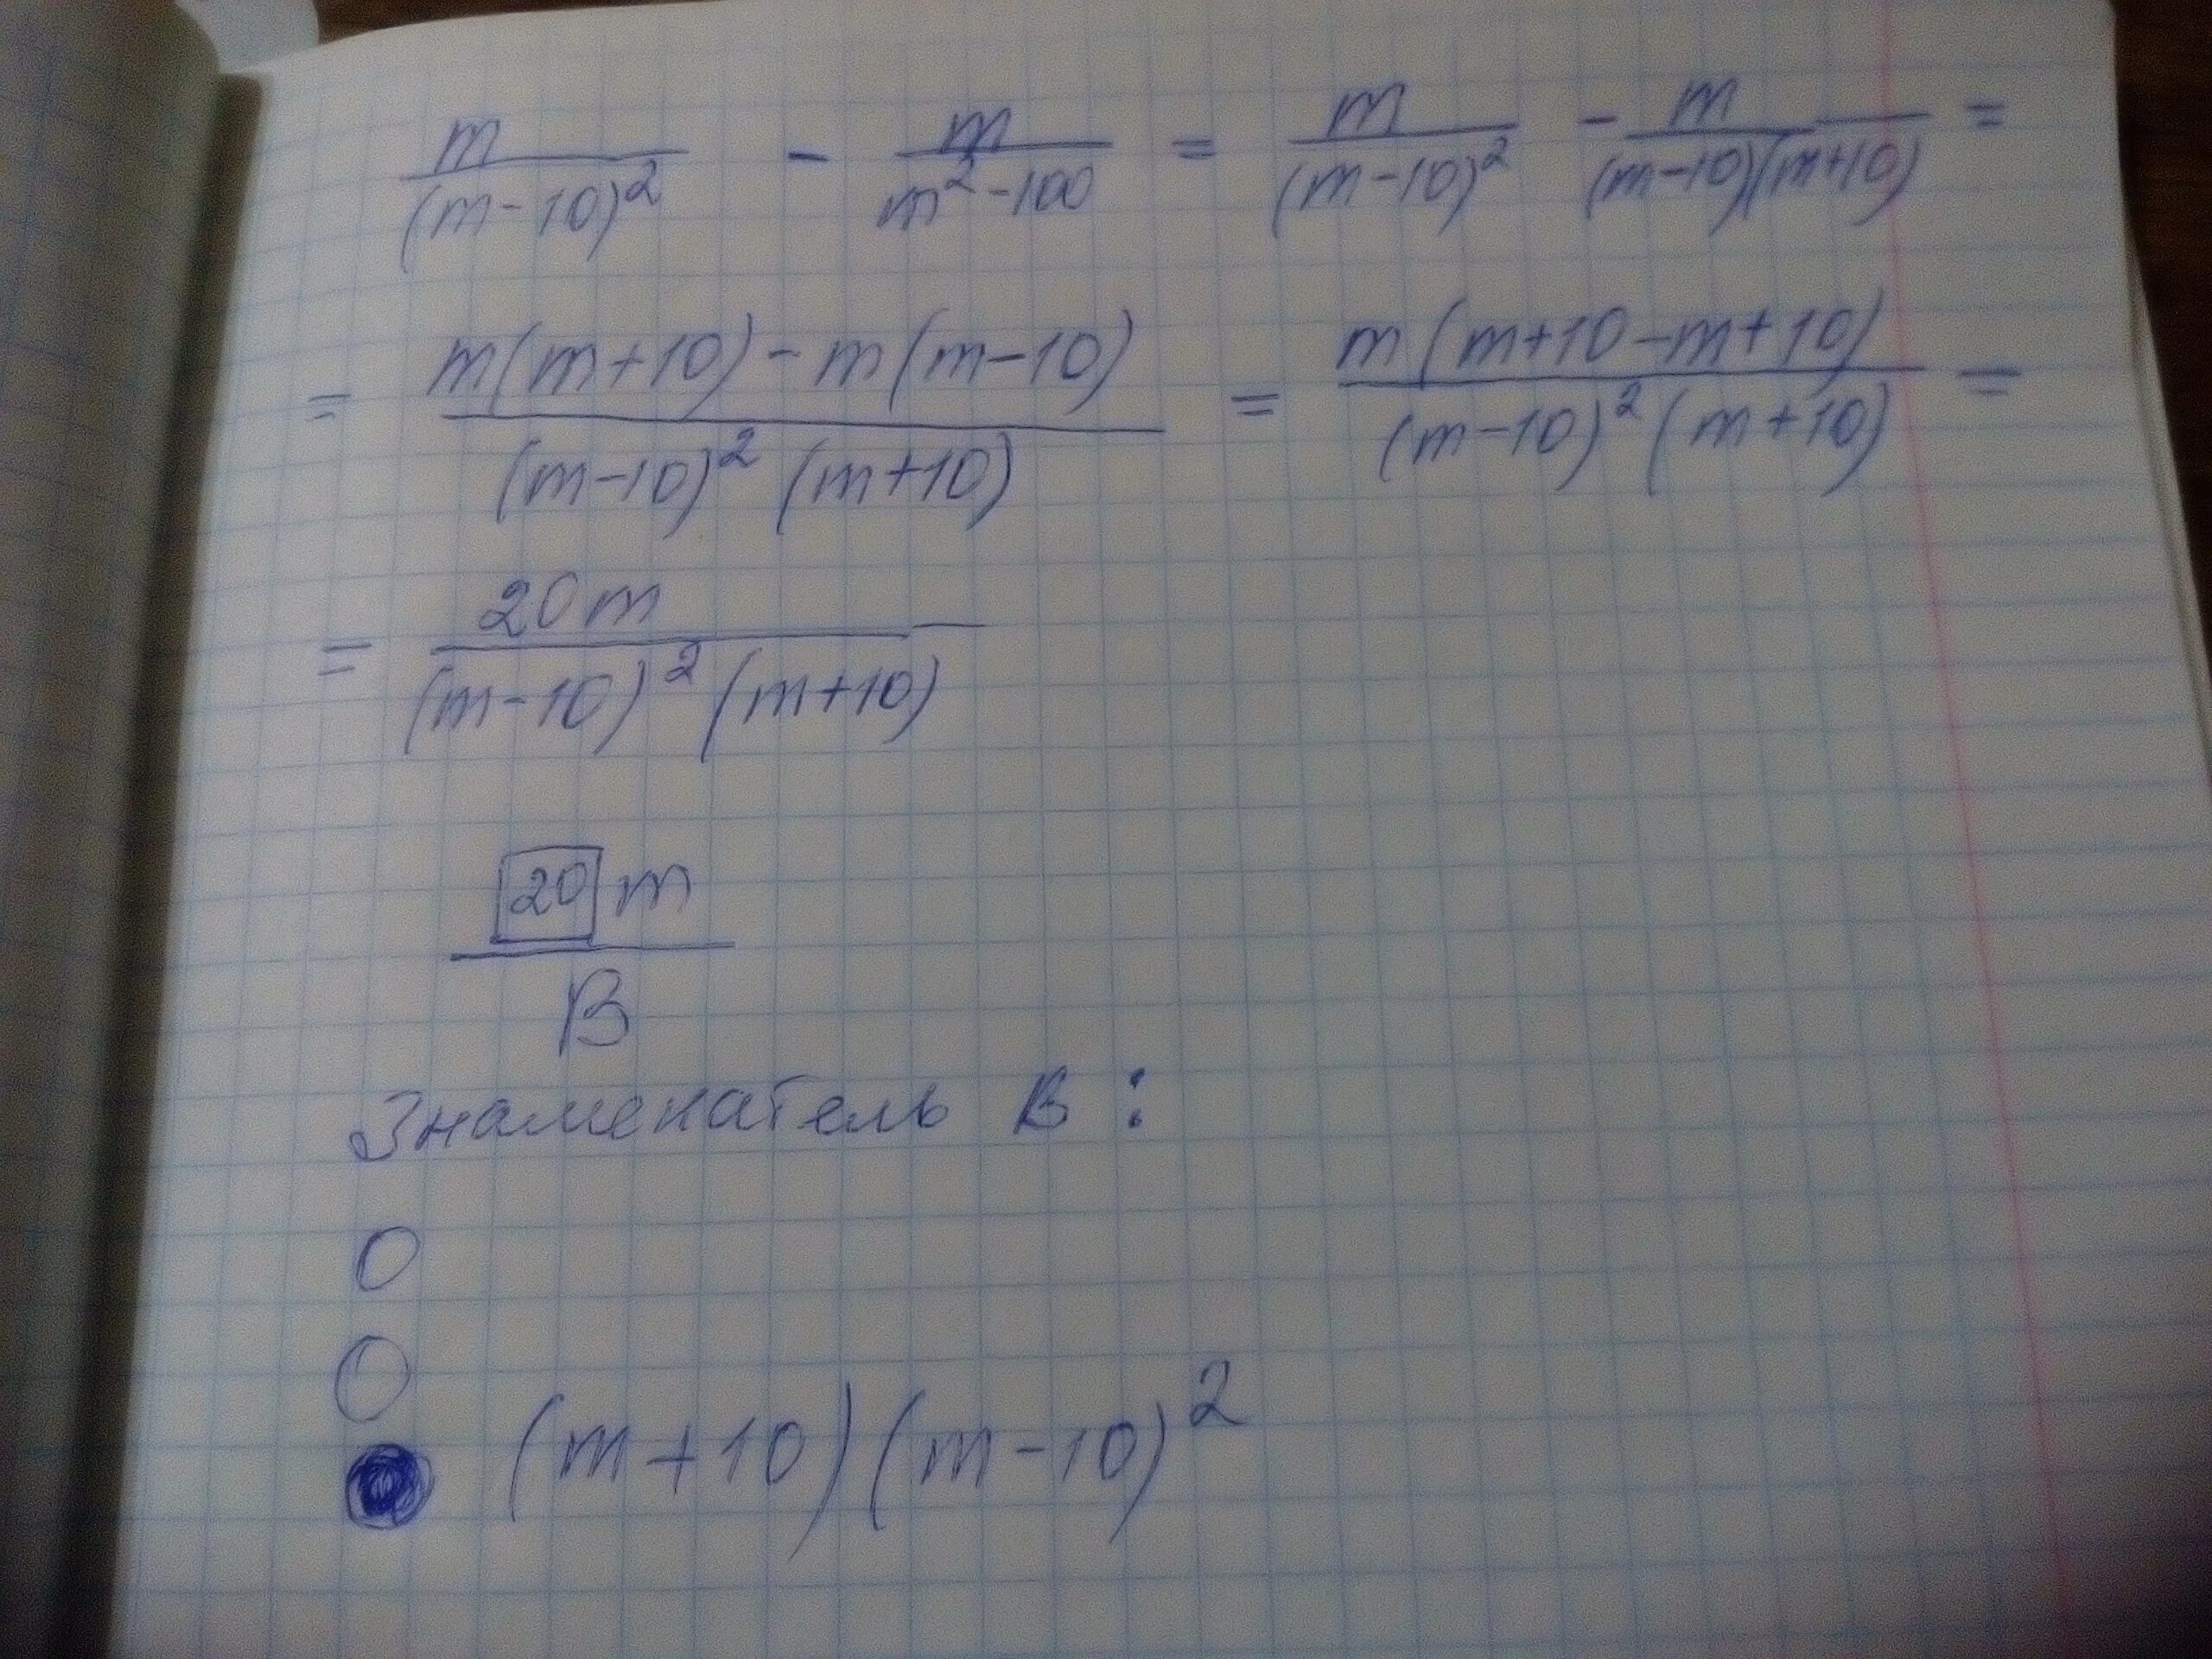 m/(m-10)² - m/(m²-100) = m/(m-10)² - m/((m-10)(m+10)) =
= (m(m+10)-m(m-10))/((m-10)²(m+10)) = (m(m+10-m+10))/((m-10)²(m+10)) =
= 20m/((m-10)²(m+10))
20 m
B
Знаменатель B:
(m+10)(m-10)²